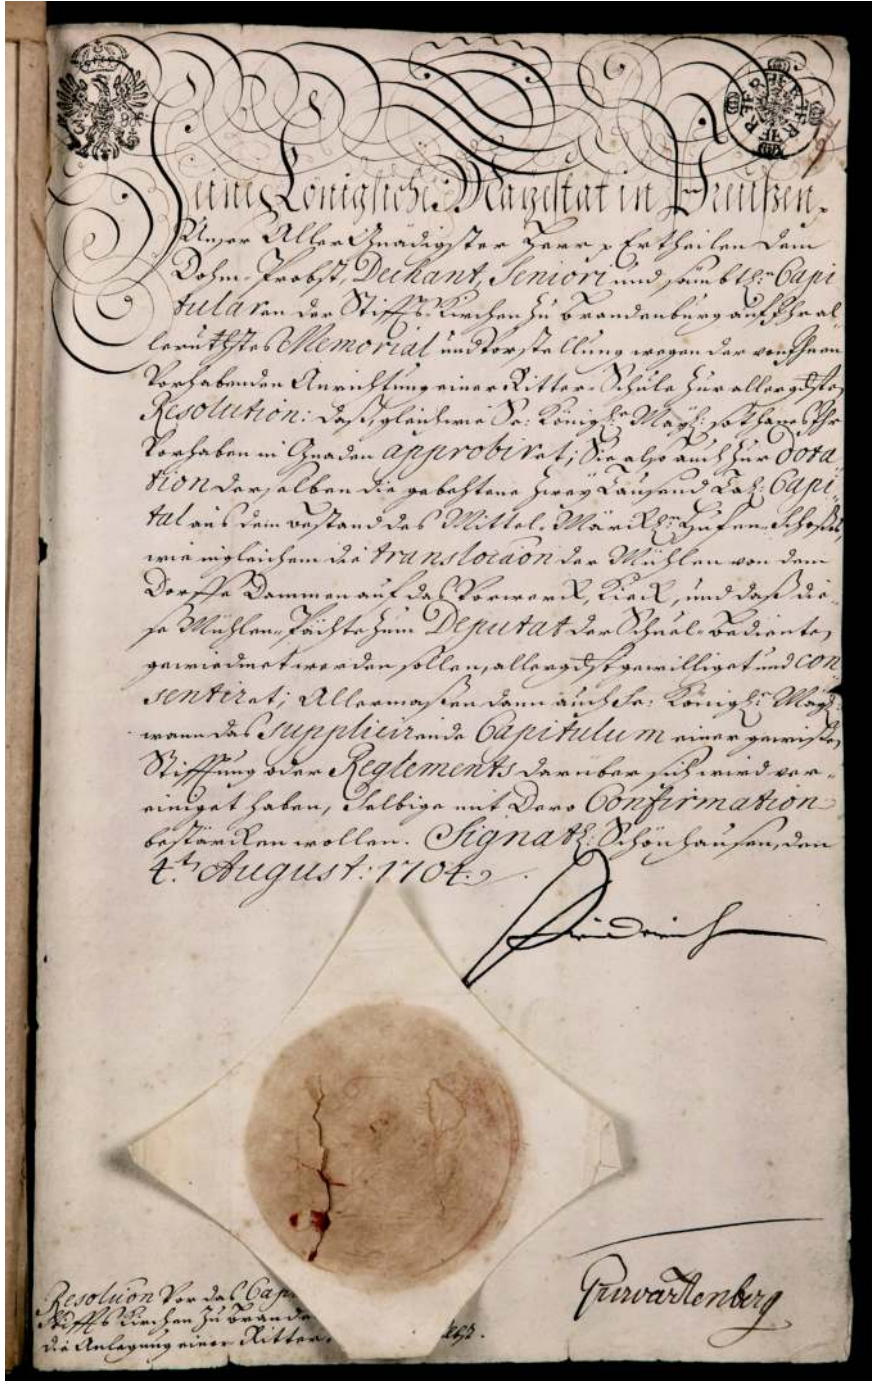 Seine Königliche Mayestät in Preußen,
Unser Aller Gnädigster Herr, Ertheilen dem
Dohm-Probst, Dechant, Seniori und sämbtl: Capi
tularen der Stiffts-Kirchen zu Brandenburg auf Ihr al-
lerunthstes Memorial und Vorstellung wegen der von Ihnen
Vorhabenden Anrichtung einer Ritter-Schule zur allergdsten
Resolution: daß, gleichwie Se: Königl: Mayt: sothanes Ihr
Vorhaben in Gnaden approbiret; Sie also auch zur Dota-
tion derselben die gebehtene Zwey Tausend Tal: Capi-
tal aus dem Bestand des Mittel-Märckschen Hufen-Schoßes,
wie ingleichem die translocaon der Mühlen von dem
Dorffe Dammen auf das Vorwerck, Kieck, und daß die-
se Mühlen-Pächte zum Deputat der Schuel-Bedienten
gewiedmet werden sollen, allergdst gewilliget und con
sentiret; Allermaßen dann auch Se: Königl: Mayt:
wann das supplicirende Capitulum einer gewißen
Stifftung oder Reglements darüber sich wird ver-
einiget haben, Selbige mit Dero Confirmation
bestärcken wollen. Signatz: Schönhausen, den
4.th August: 1704.
Friderich
Resoluon Vor das Cap
Stiffts Kirchen zu Brande
die Anlegung einer Ritter
Gr v Wartenberg